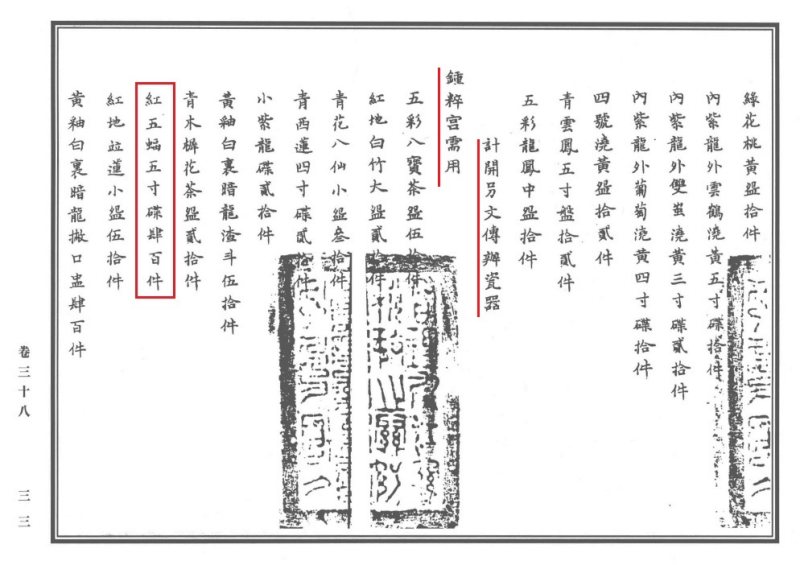 綠花桃黃盌拾件
內紫龍外雲鶴澆黃五寸碟拾件
內紫龍外雙蚩澆黃三寸碟貳拾件
內紫龍外葡萄澆黃四寸碟拾件
四號澆黃盌拾貳件
青雲鳳五寸盤拾貳件
五彩龍鳳中盌拾件
計開另文傳辦瓷器
鍾粹宮需用
五彩八寶茶盌伍拾件
紅地白竹大盌貳拾件
青花八仙小盌叁拾件
青西蓮四寸碟貳拾件
小紫龍碟貳拾件
黃釉白裏暗龍渣斗伍拾件
青木樨花茶盌貳拾件
紅五蝠五寸碟肆百件
紅地蓮小盌伍拾件
黃釉白裏暗龍撇口盅肆百件
卷三十八
三三